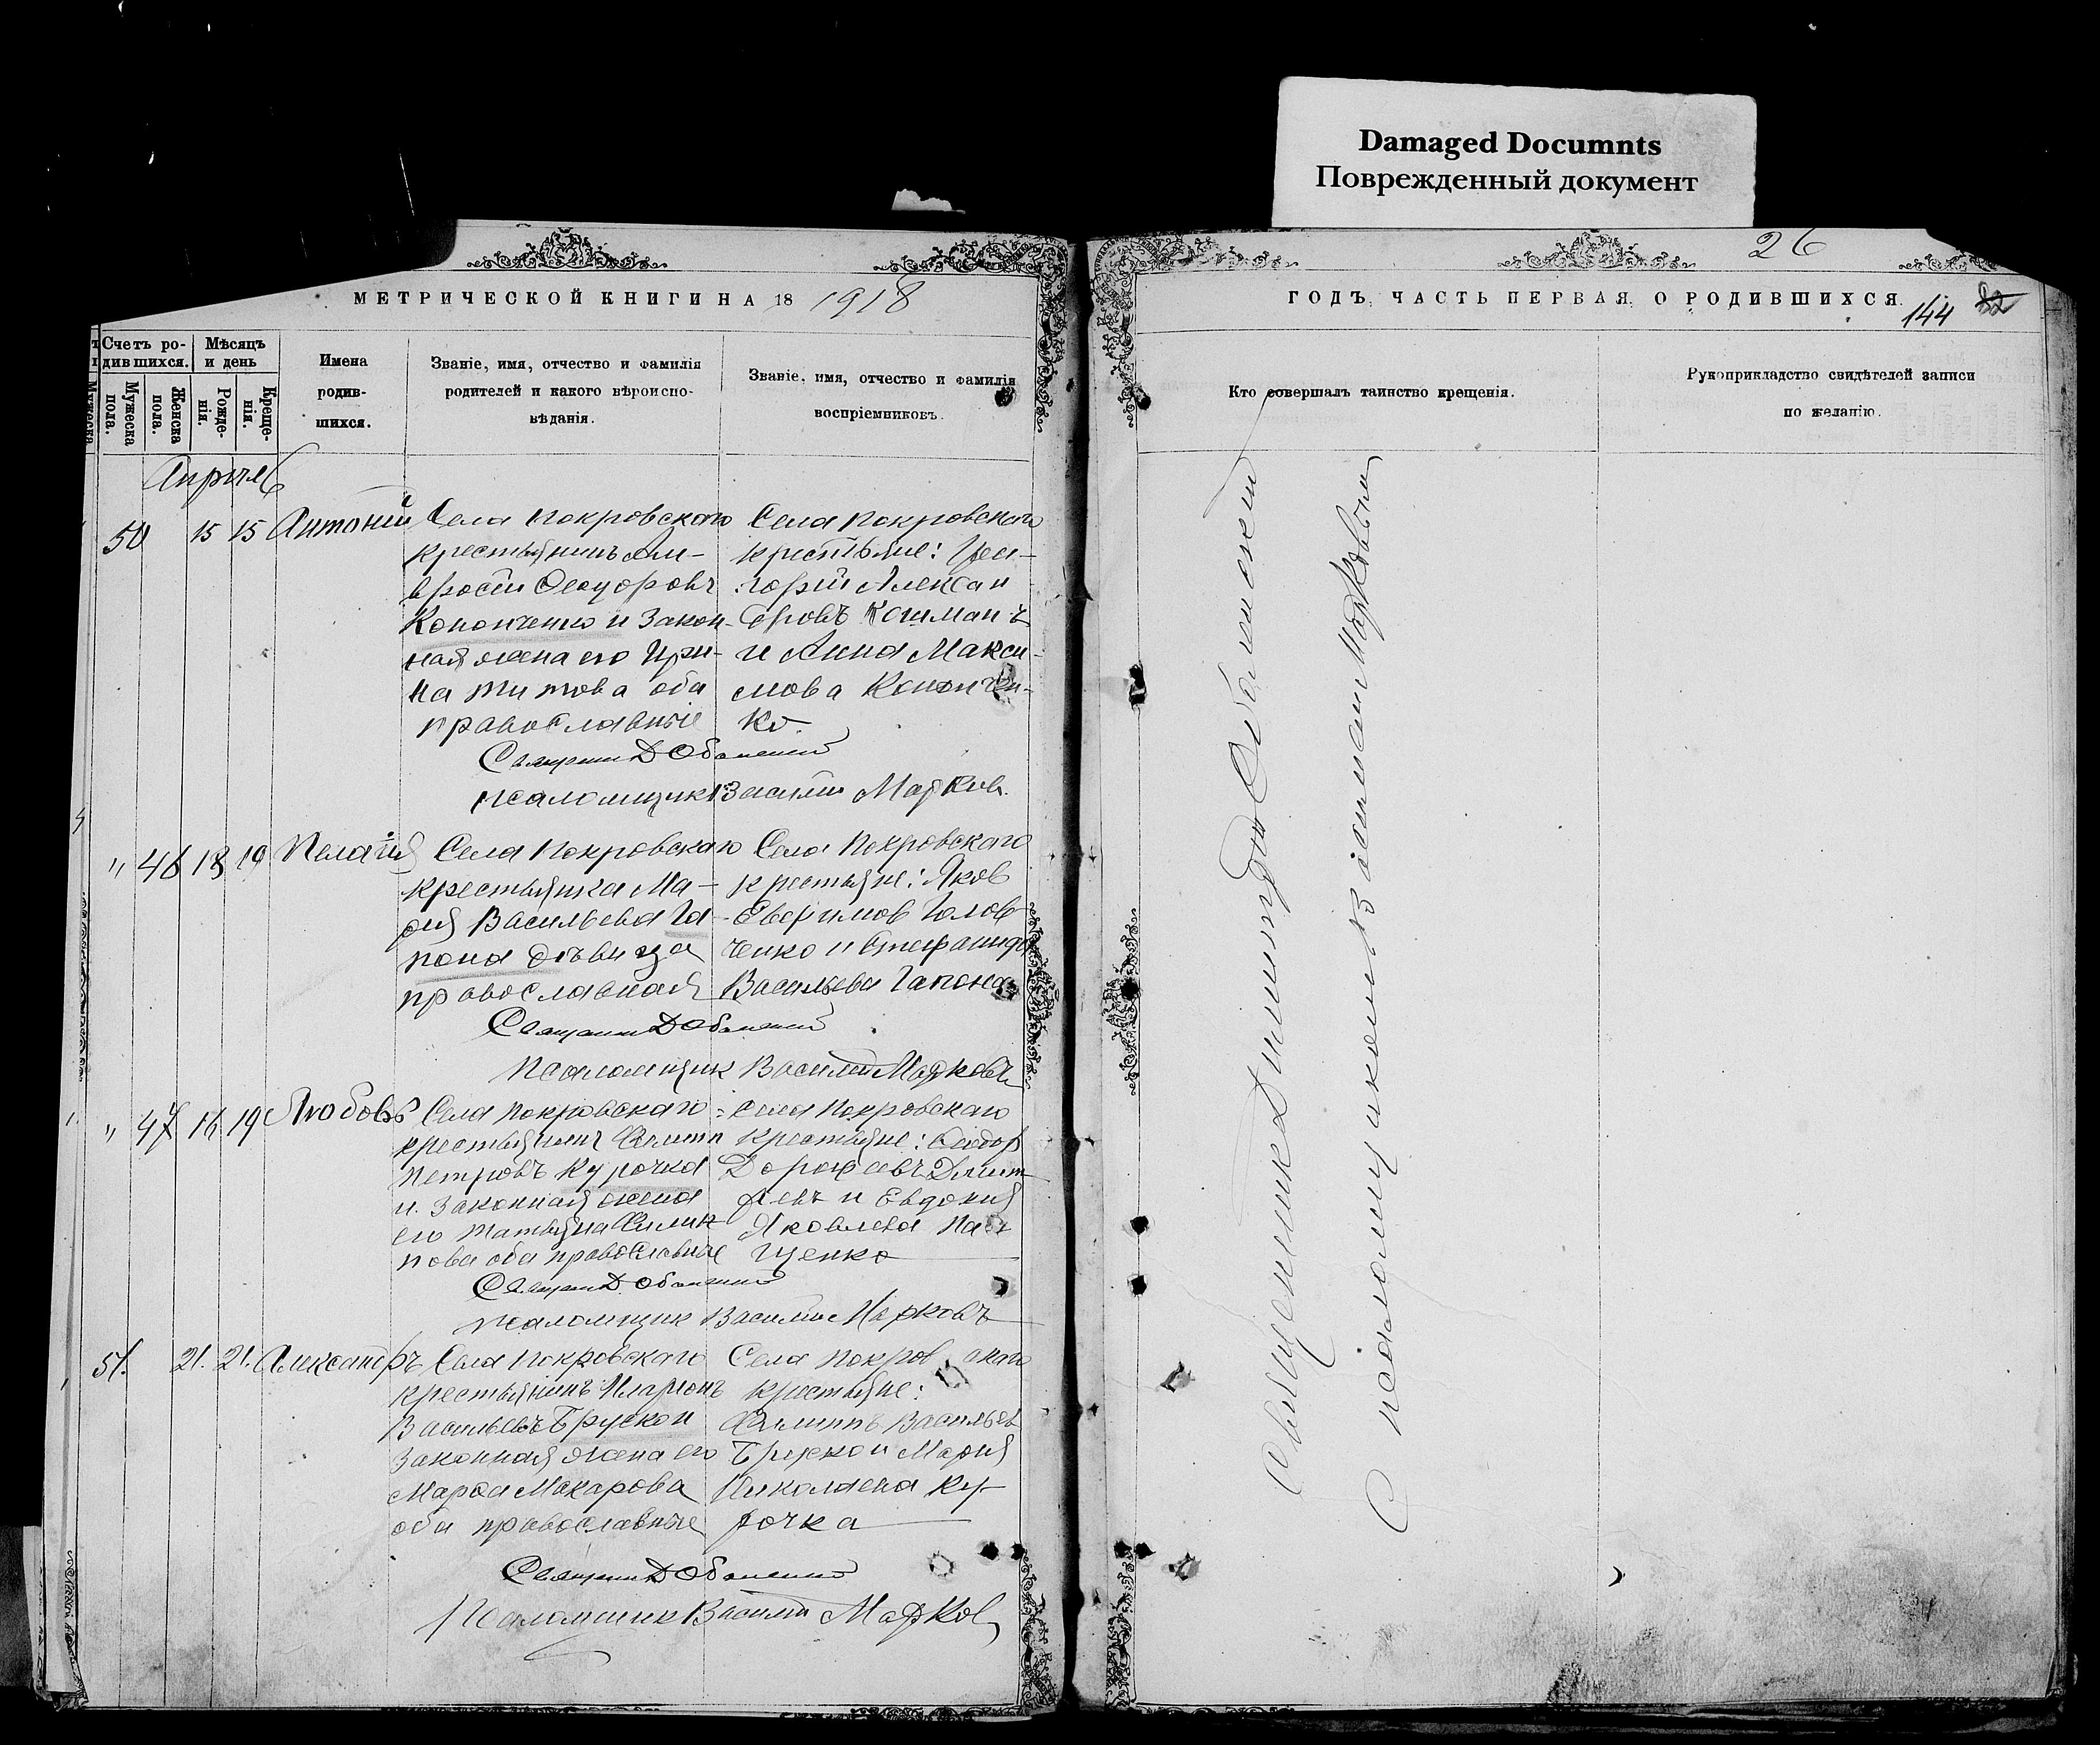 Damaged Documnts
Поврежденный документ
26
МЕТРИЧЕСКОЙ КНИГИ НА 18 1918
ГОДЪ, ЧАСТЬ ПЕРВАЯ, О РОДИВШИХСЯ.
144 82
Счетъ ро-
дившихся.
Мѣсяцъ
и день
Мужеска
пола.
Женска
пола.
Рожде-
нія.
Креще-
нія.
Имена
родив-
шихся.
Званіе, имя, отчество и фамилія
родителей и какого вѣроиспо-
вѣданія.
Званіе, имя, отчество и фамилія
воспріемниковъ.
Кто совершалъ таинство крещенія.
Рукоприкладство свидѣтелей записи
по желанію.
Апрѣль
50 15 15 Антоній
Села Покровскаго
крестьянинъ Ам-
вросій Ѳеодоровъ
Кононченко и закон-
ная жена его Ири-
на Титова оба
православные
Села Покровскаго
крестьяне: Гри-
горій Алексан
дровъ Кошманъ
и Анна Макси-
мова Кононч н-
ко.
Священ Д Оболенскій
псаломщикъ Василій Марковъ.
" 46 18 19 Пелагія
Села Покровскаго
крестьянка Ма-
рія Васильева Га-
пона дѣвица
православная
Села Покровскаго
крестьяне: Яков
Евфимов Голов
ченко и Стефанида
Васильева Гапона
Священ Д Оболенскій
Псаломщик Василій Марковъ
" 47 16 19 Любовь
Села Покровскаго
крестьянинъ Филипп
Петровъ Курочка
и законная жена
его Татьяна Филип
пова оба православные
Села Покровскаго
крестьяне: Ѳеодор
Дорофеевъ Дмит
ревъ и Евдокия
Яковлева Па
щенко
Священ Д. Оболенскій
псаломщик Василій Марковъ
51. 21. 21. Александръ
Села Покровскаго
крестьянинъ Иларионъ
Васильевъ Бруско и
законная жена его
Марѳа Макарова
оба православные
Села Покровскаго
крестьяне:
Филиппъ Васильев
Бруско и Мария
Николаева Ку-
рочка
Священ Д Оболенскій
Псаломщик Василій Марков
Священникъ Димитрій Оболенскій
С псаломщикомъ Василіемъ Марковымъ